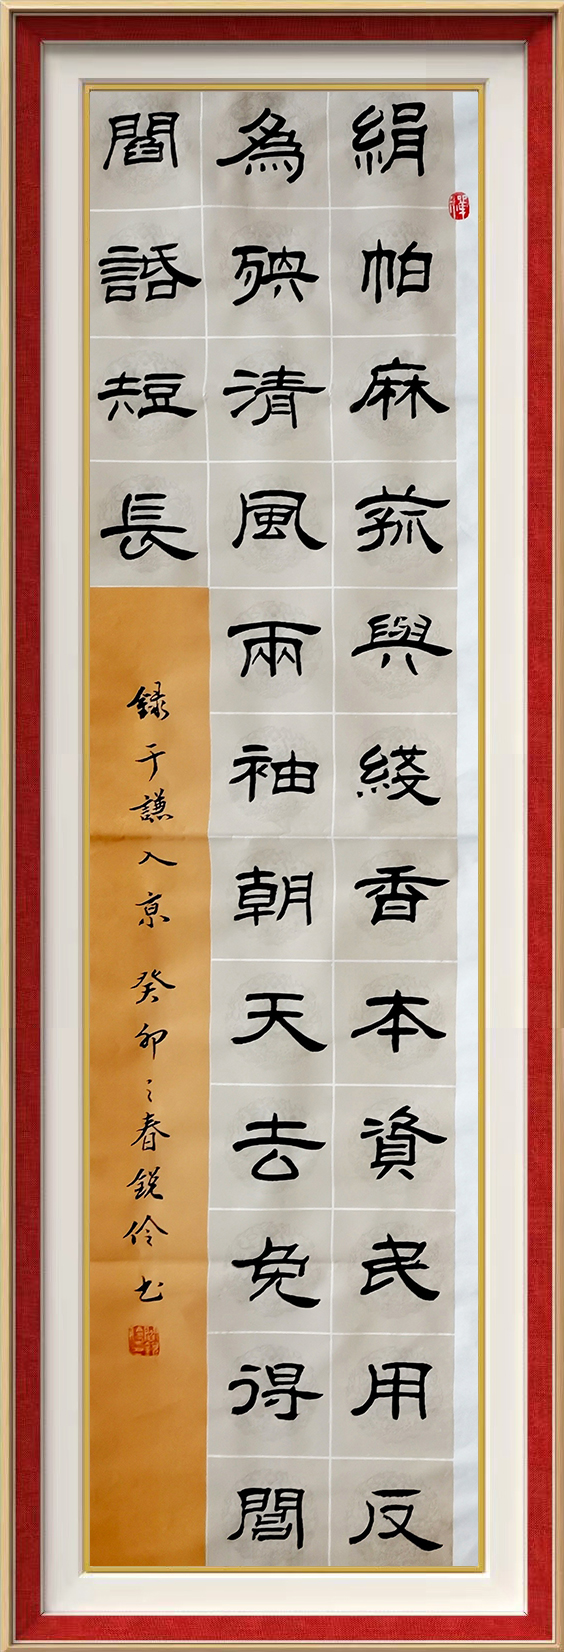 絹帕麻菰與綫香本資民用反
為殃清風兩袖朝天去免得閭
閻話短長
録于謙入京 癸卯之春銳伶书